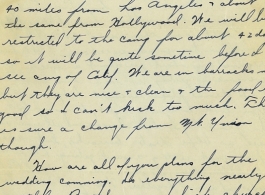 40 miles from Los Angeles & about
the same from Hollywood. We will be
restricted to the camp for about 42 da
so it will be quite sometime before I
see any of Calif. We are in barracks
but they are nice & clean & the food
good so I can't kick to much. Th
is sure a change from
though.
How are all of your plans for the
wedding comming. Is everything nearly